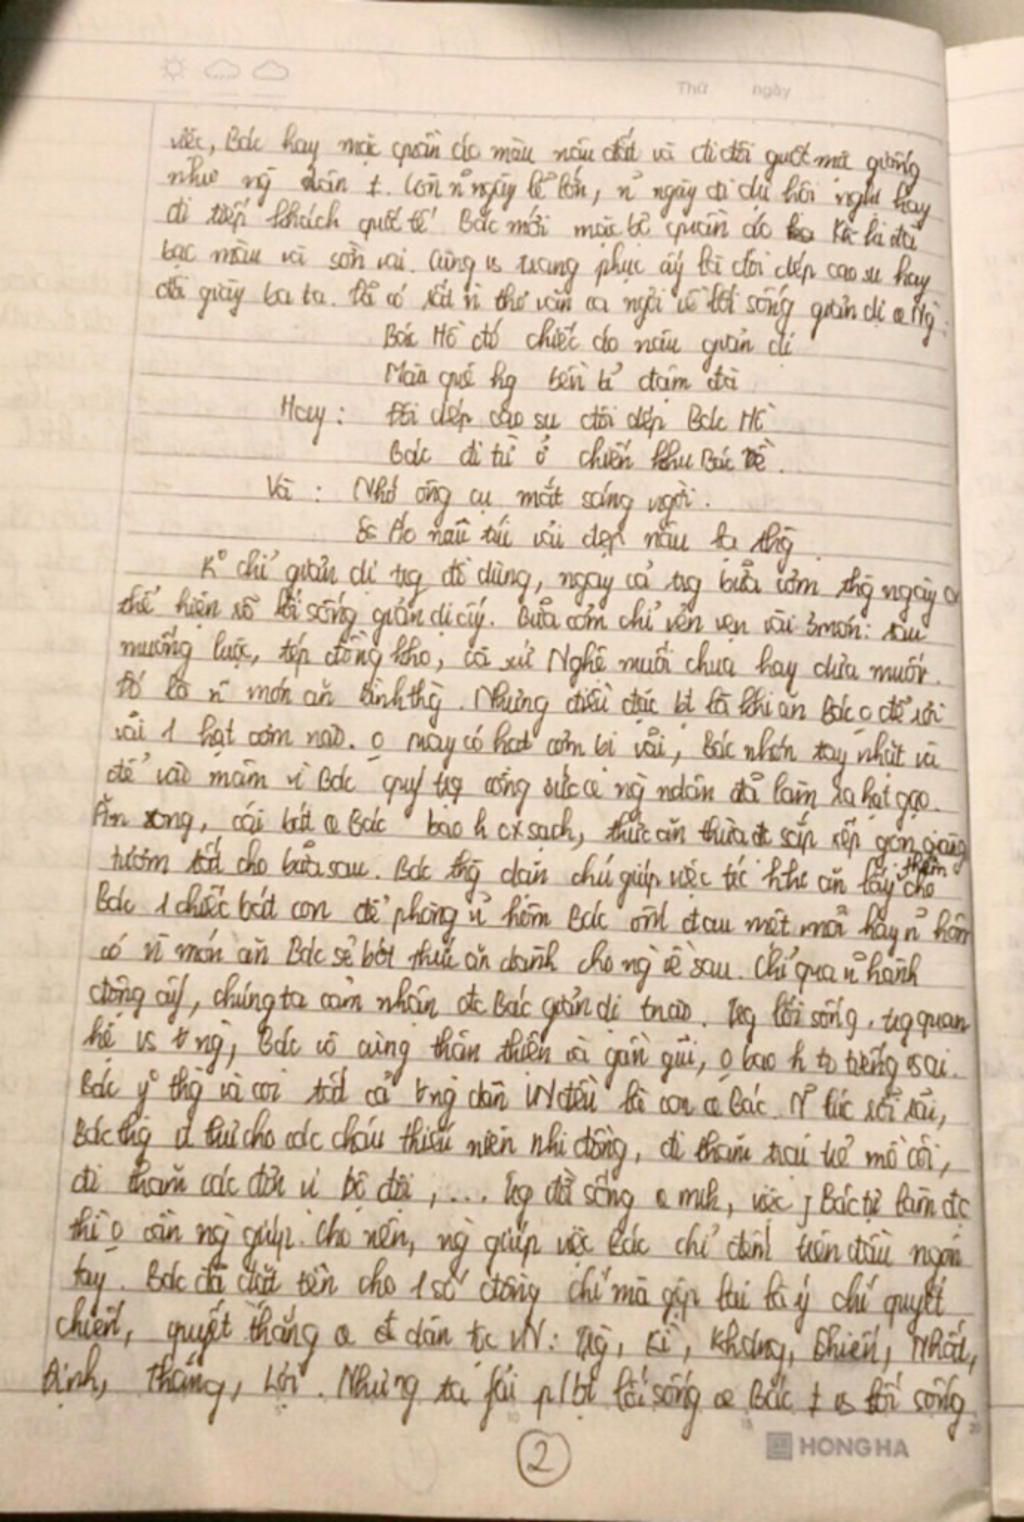 Thứ ngày
việc, Bác hay mặc quần áo màu nâu đất và đi đôi guốc mộc giống
như ng dân t. Còn n~ ngày lễ lớn, n~ ngày đi dự hội nghị hay
đi tiếp khách quốc tế Bác mới mặc bộ quần áo Ka ki đã
bạc màu và sờn vai. Cùng vs trang phục ấy là đôi dép cao su hay
đôi giày ba ta. Đã có rất n thơ văn ca ngợi về lối sống giản dị Ng:
Bác Hồ đó chiếc áo nâu giản dị
Màu quê hg bền bỉ đậm đà
Hay: Đôi dép cao su đôi dép Bác Hồ
Bác đi từ ở chiến khu Bác về.
Và: Nhớ ông cụ mắt sáng ngời.
Áo nâu túi vải đẹp nâu lạ thg
K chỉ giản dị trg đồ dùng, ngay cả trg bữa cơm thg ngày
thể hiện rõ lối sống giản dị ấy. Bữa cơm chỉ vẻn vẹn vài 3 món: rau
muống luộc, tép đồng kho, cà xứ Nghệ muối chua hay dưa muối.
Đó là n~ món ăn bình thg. Nhưng điều đặc bt là khi ăn Bác o để rơi
vãi 1 hạt cơm nào. o may có hạt cơm bị vãi, Bác nhón tay nhặt và
để vào mâm vì Bác quý trg công sức ng ndân đã làm ra hạt gạo.
Ăn xong, cái bát Bác bao h cx sạch, thức ăn thừa đc sắp xếp gọn gàng
tươm tất cho bữa sau. Bác thg dặn chú giúp việc trc khi ăn lấy thêm cho
Bác 1 chiếc bát con để phòng n~ hôm Bác ốm đau mệt mỏi hay n~ hôm
có n món ăn Bác sẽ bớt thức ăn dành cho ng về sau. Chỉ qua n~ hành
động ấy, chúng ta cảm nhận đc Bác giản dị tnào. Trg lối sống, trg quan
hệ vs ng, Bác vô cùng thân thiện và gần gũi, o bao h to tiếng vs ai.
Bác y thg và coi tất cả ng dân VN đều là con Bác. N~ lúc rỗi rãi,
Bác thg thư cho các cháu thiếu niên nhi đồng, đi thăm trại trẻ mồ côi,
đi thăm các đơn vị bộ đội, ... Trg đời sống mình, việc j Bác tự làm đc
thì o cần ng giúp. Cho nên, ng giúp việc Bác chỉ đếm trên đầu ngón
tay. Bác đã đặt tên cho 1 số đồng chí mà gộp lại là ý chí quyết
chiến, quyết thắng dân tộc VN: Trg, Kì, Kháng, Chiến, Nhất,
Định, Thắng, Lợi. Nhưng ta fải p/bt lối sống Bác vs lối sống
2
HONG HA